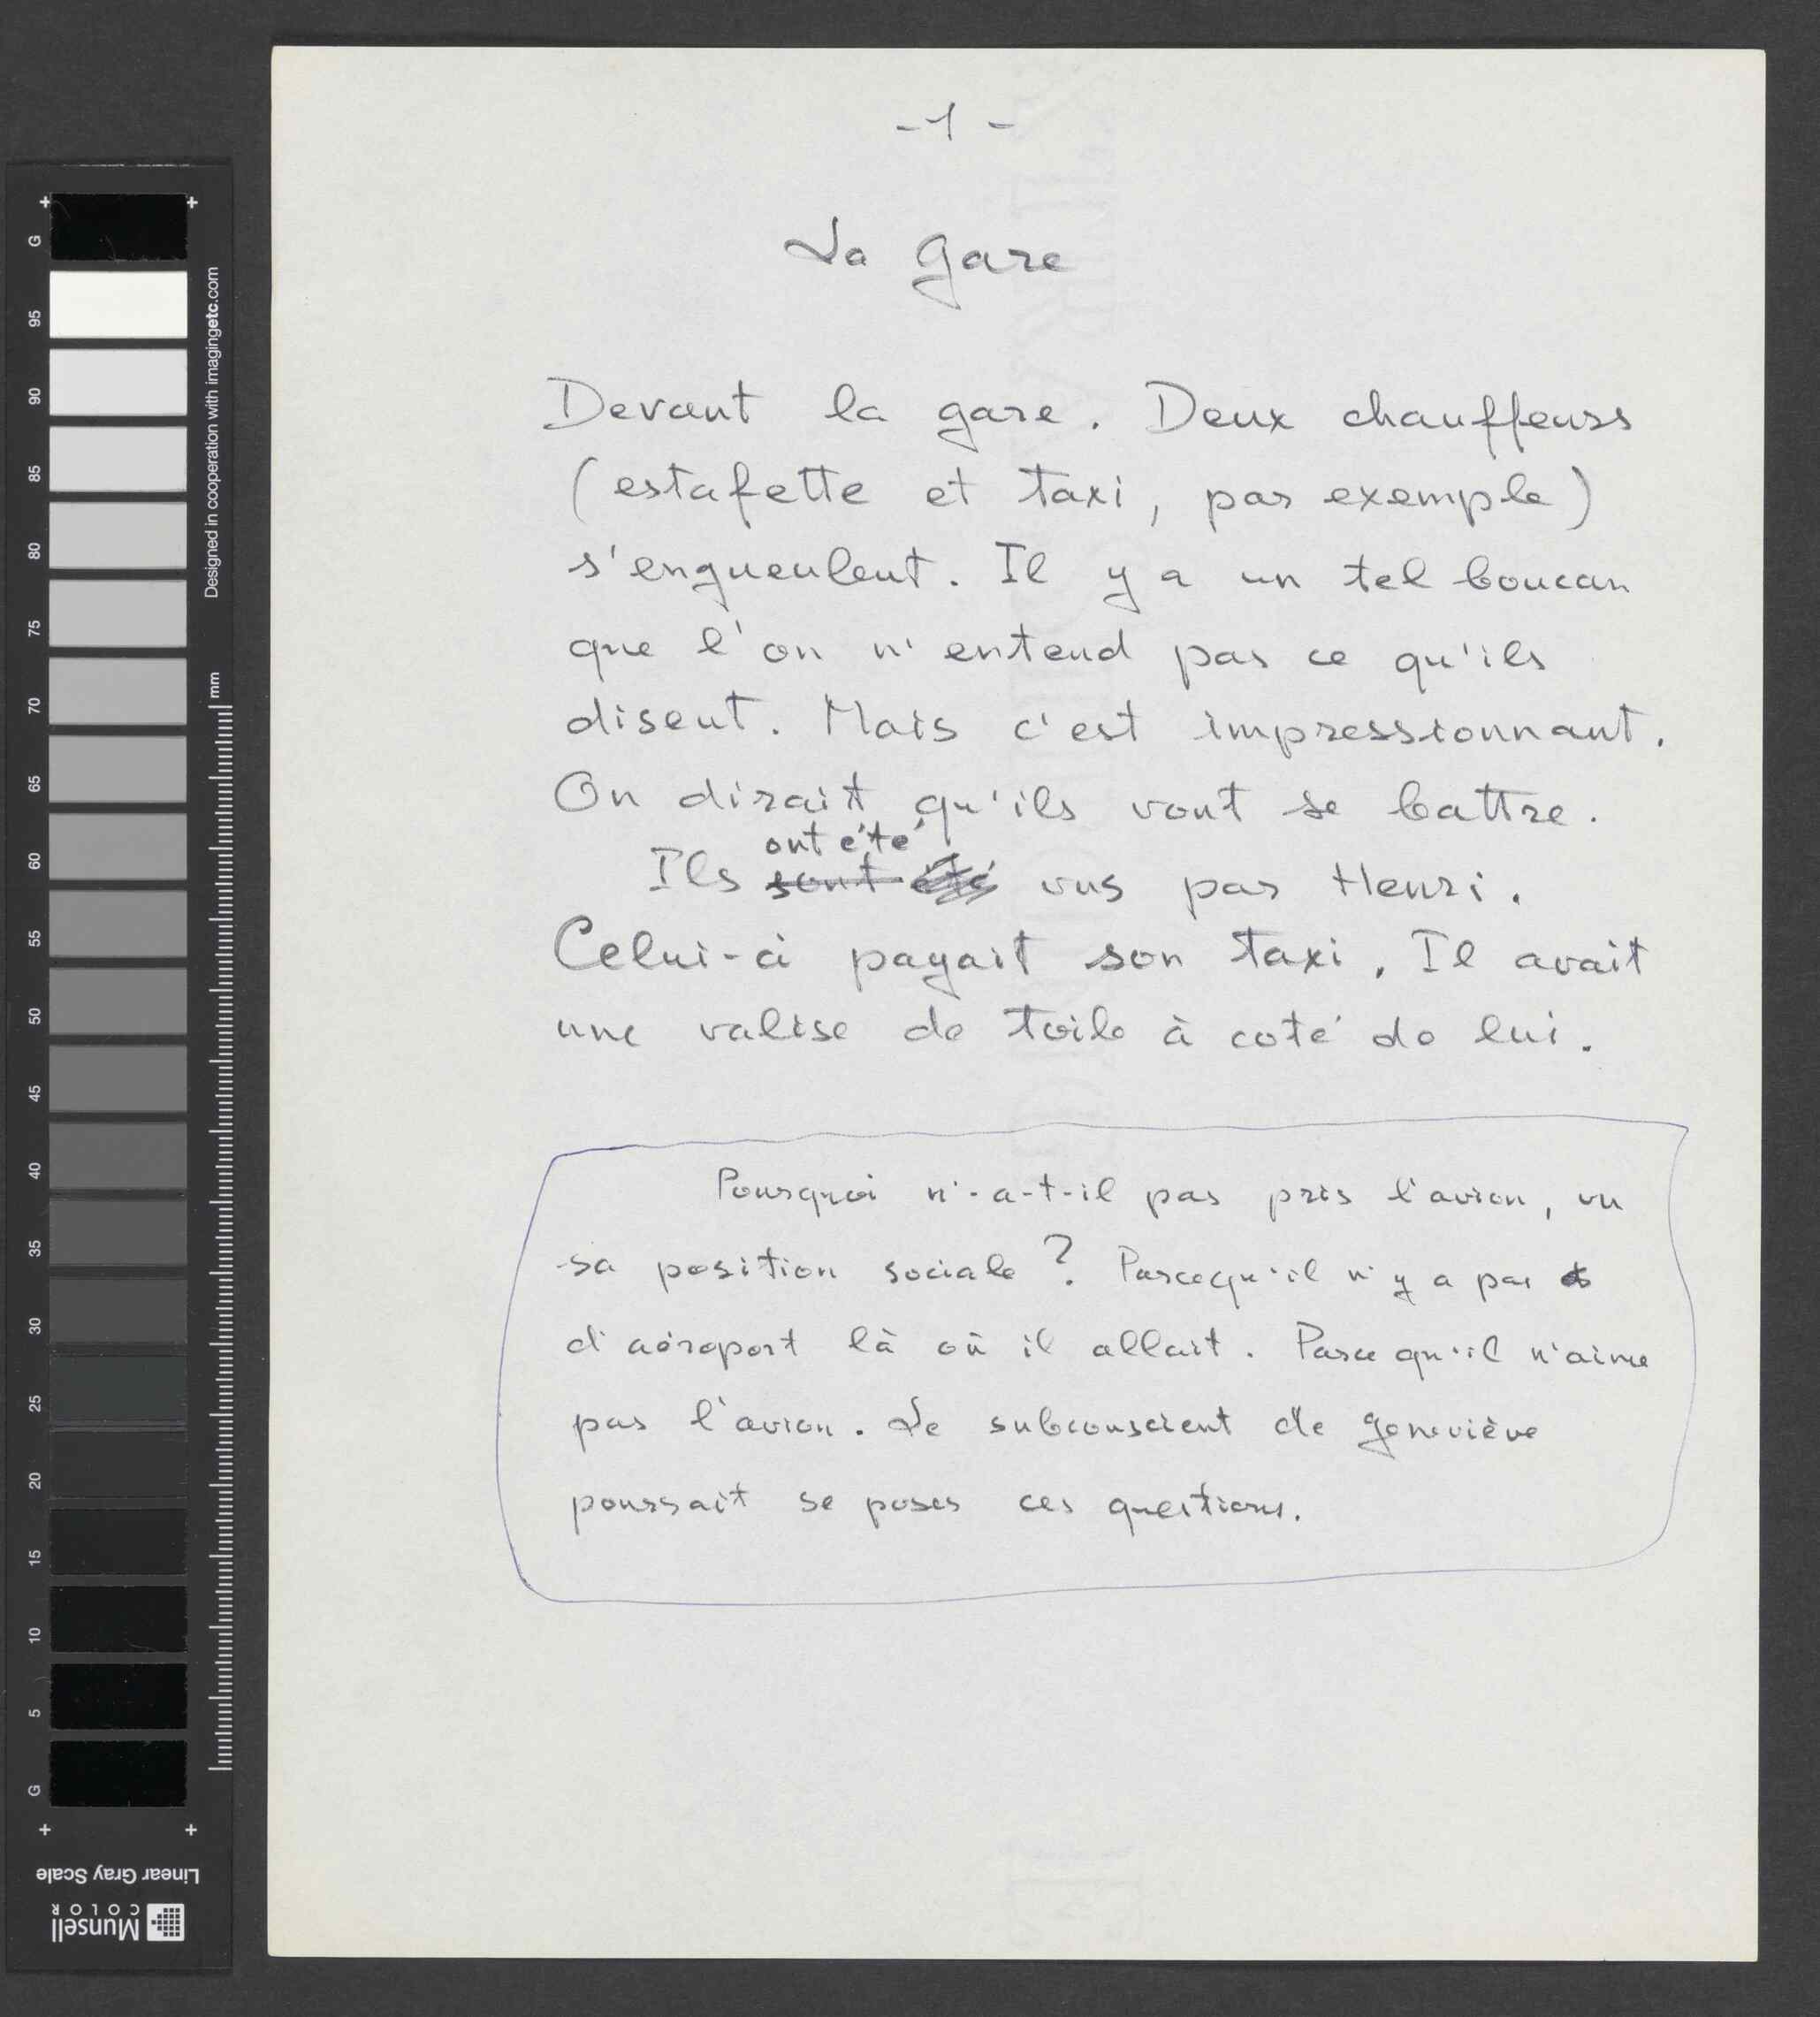 -1-
La gare
Devant la gare. Deux chauffeurs
(estafette et taxi, par exemple)
s'engueulent. Il y a un tel boucan
que l'on n'entend pas ce qu'ils
disent. Mais c'est impressionnant.
On dirait qu'ils vont se battre.
ont été
Ils sont été vus par Henri.
Celui-ci payait son taxi. Il avait
une valise de toile à coté de lui.
Pourquoi n'-a-t-il pas pris l'avion, vu
sa position sociale ? Parcequ'il n'y a pas
d'aéroport là où il allait. Parce qu'il n'aime
pas l'avion. Le subconscient de Geneviève
pourrait se poser ces questions.
G
95
90
85
80
75
70
65
60
55
50
45
40
35
30
25
20
15
10
5
G
Designed in cooperation with imagingetc.com
mm
Linear Gray Scale
Munsell
COLOR